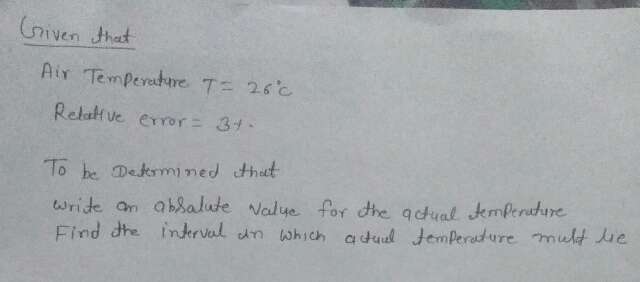 Given that
Air Temperature T = 26°C
Relative error = 3%.
To be Determined that
write an absalute value for the actual temperature
Find the interval in which actual temperature must lie